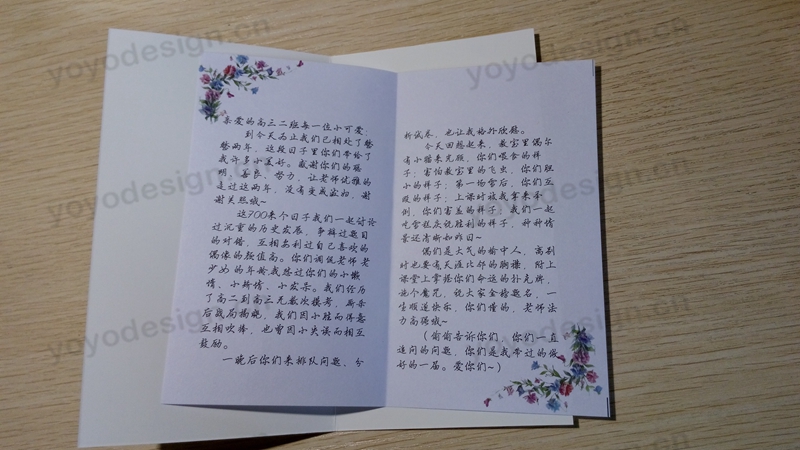 亲爱的高三二班每一位小可爱：
到今天为止我们已相处了整
整两年，这段日子里你们带给了
我许多小美好。感谢你们的聪
明、善良、努力，让老师优雅的
走过这两年，没有变成寡妇，谢
谢关照哦~
这700来个日子我们一起讨论
过沉重的历史发展，争辩过题目
的对错，互相安利过自己喜欢的
偶像的颜值高。你们调侃老师老
少女的年龄我怒过你们的小懒
惰、小矫情、小欢乐。我们经历
了高二到高三无数次模考，厮杀
后战局揭晓，我们因小胜而得意
互相吹捧，也曾因小失误而相互
鼓励。
一晚后你们来排队问题，分
析试卷，也让我格外欣慰。
今天回想起来，教室里偶尔
有小猫来光顾，你们喂食的样
子；害怕教室里的飞虫，你们胆
小的样子；第一场雪后，你们互
殴的样子；上课时被我拿来举
例，你们害羞的样子；我们一起
吃雪糕庆祝胜利的样子，种种情
景还清晰如昨日~
偶们是大气的榆中人，离别
时也要有天涯比邻的胸襟，附上
课堂上掌握你们命运的扑克牌，
施个魔咒，祝大家金榜题名，一
生顺遂快乐，你们懂的，老师法
力高强哦~
（偷偷告诉你们，你们一直
追问的问题，你们是我带过的最
好的一届。爱你们~）
yoyodesign.cn